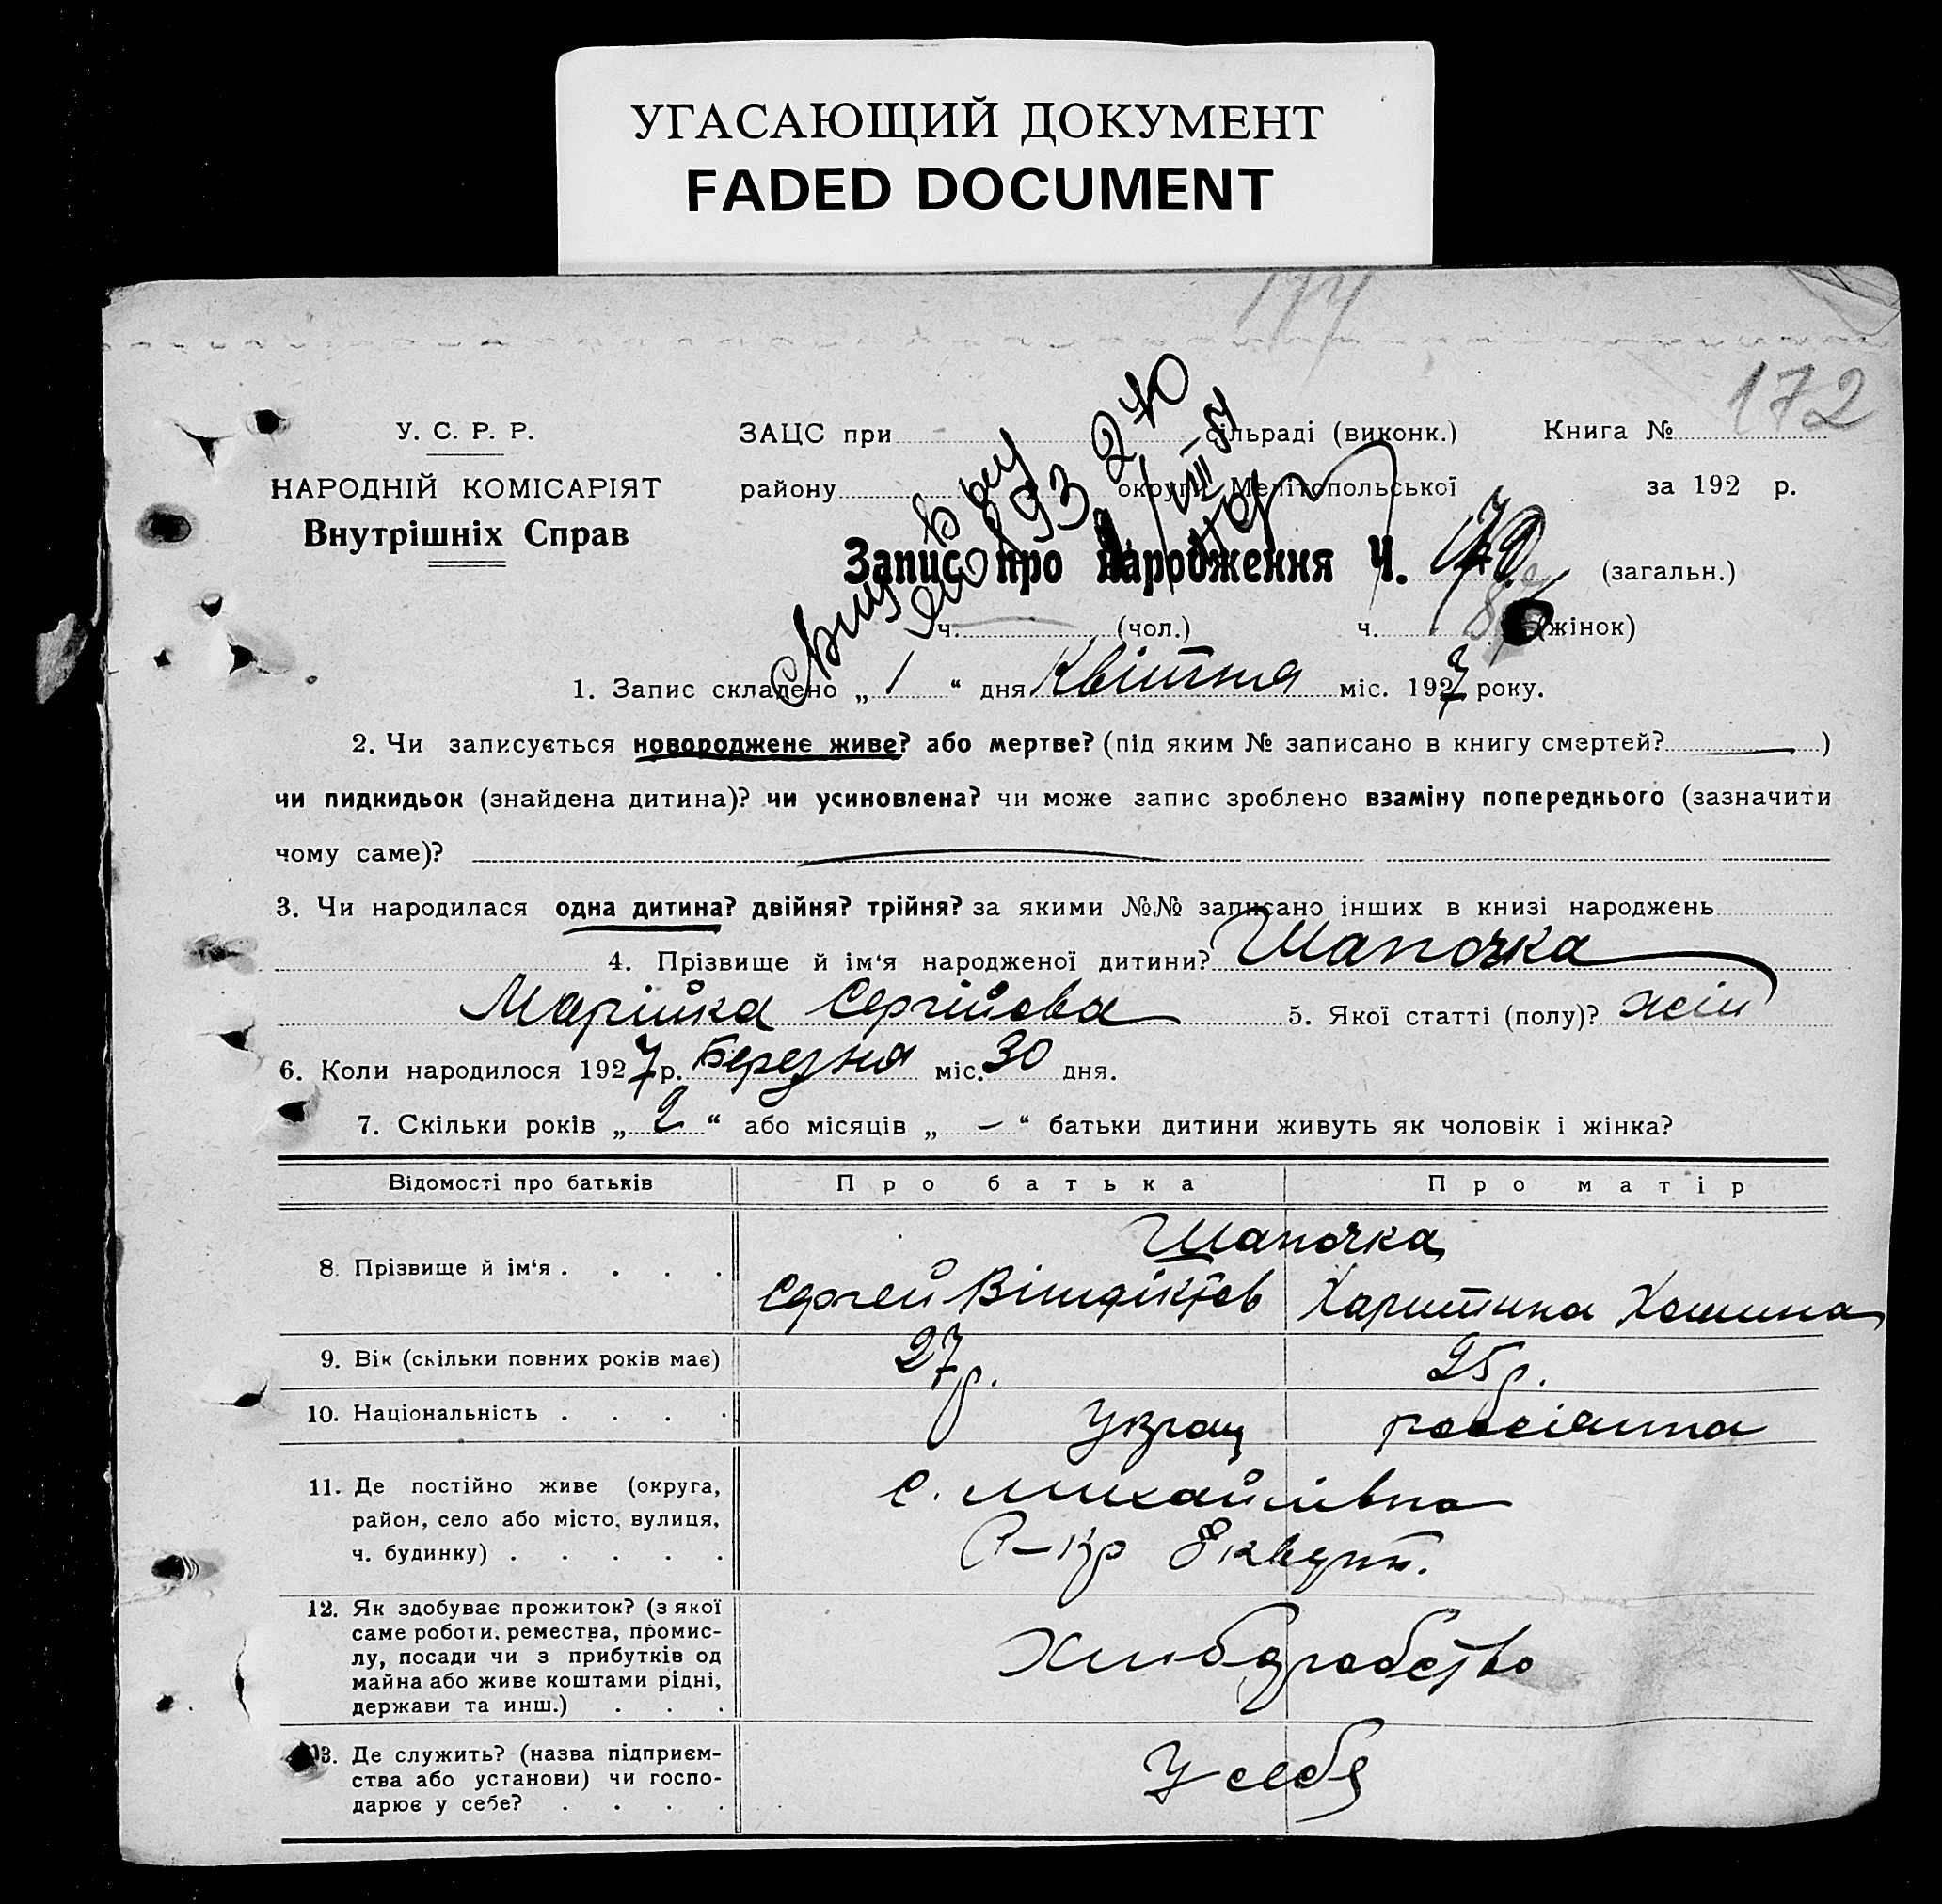 УГАСАЮЩИЙ ДОКУМЕНТ
FADED DOCUMENT
172
У. С. Р. Р.
НАРОДНІЙ КОМІСАРІЯТ
Внутрішніх Справ
ЗАЦС при сільраді (виконк.)
району округи Мелітопольської
Книга №
за 192 р.
Запис про народження Ч. (загальн.)
ч. (чол.) ч. (жінок)
1. Запис складено „ 1 “ дня Квітня міс. 1927 року.
2. Чи записується новороджене живе? або мертве? (під яким № записано в книгу смертей? — )
чи пидкидьок (знайдена дитина)? чи усиновлена? чи може запис зроблено взаміну попереднього (зазначити
чому саме)?
3. Чи народилася одна дитина? двійня? трійня? за якими №№ записано інших в книзі народжень
4. Прізвище й ім‘я народженої дитини? Шапочка
Марійка Сергійова 5. Якої статті (полу)? жін
6. Коли народилося 1927 р. Березня міс. 30 дня.
7. Скільки років „ 2 “ або місяців „ — “ батьки дитини живуть як чоловік і жінка?
Відомості про батьків Про батька Про матір
8. Прізвище й ім‘я . . . . Шапочка
Сергей Харитина
9. Вік (скільки повних років має) 27 р. 25 р.
10. Національність . . . . Украц россіянка
11. Де постійно живе (округа,
район, село або місто, вулиця,
ч. будинку) . . . . .
с. Михайлівка
12. Як здобуває прожиток? (з якої
саме роботи, ремества, промис-
лу, посади чи з прибутків од
майна або живе коштами рідні,
держави та инш.) . . .
Хлиборобство
13. Де служить? (назва підприєм-
ства або установи) чи госпо-
дарює у себе? . . . .
У себя